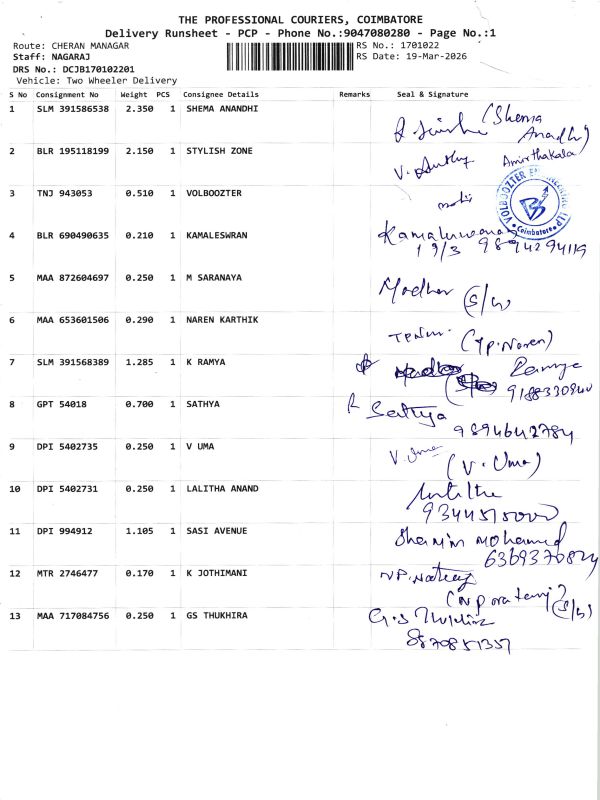 THE PROFESSIONAL COURIERS, COIMBATORE
Delivery Runsheet - PCP - Phone No.:9047080280 - Page No.:1
Route: CHERAN MANAGAR RS No.: 1701022
Staff: NAGARAJ RS Date: 19-Mar-2026
DRS No.: DCJB170102201
Vehicle: Two Wheeler Delivery
S No Consignment No Weight PCS Consignee Details Remarks Seal & Signature
1 SLM 391586538 2.350 1 SHEMA ANANDHI (Shema
Anadhi)
2 BLR 195118199 2.150 1 STYLISH ZONE Amirthakala
3 TNJ 943053 0.510 1 VOLBOOZTER
VOLBOOZTER
Coimbatore
4 BLR 690490635 0.210 1 KAMALESWRAN
19/3 9894294119
5 MAA 872604697 0.250 1 M SARANAYA Madhav (S/W)
6 MAA 653601506 0.290 1 NAREN KARTHIK (Tp. Naren)
7 SLM 391568389 1.285 1 K RAMYA Ramya
8 GPT 54018 0.700 1 SATHYA Sathya
9894642784
9 DPI 5402735 0.250 1 V UMA V. Uma
(V. Uma)
10 DPI 5402731 0.250 1 LALITHA ANAND
11 DPI 994912 1.105 1 SASI AVENUE Mohamed
12 MTR 2746477 0.170 1 K JOTHIMANI
(S/W)
13 MAA 717084756 0.250 1 GS THUKHIRA
8870851357